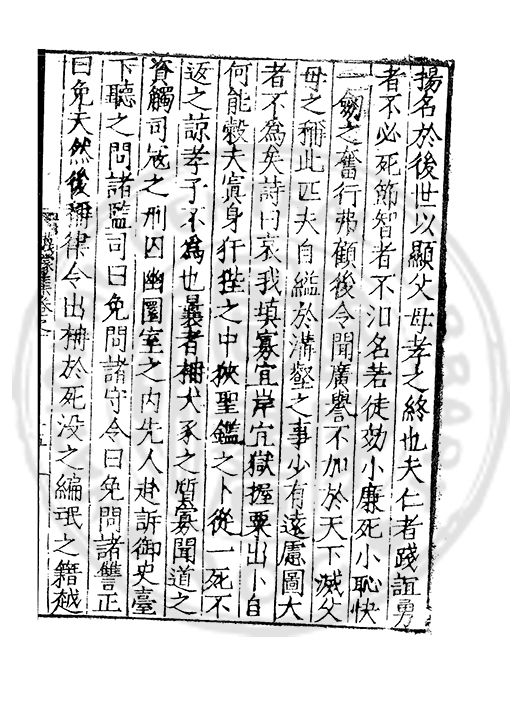 揚名於後世以顯父母孝之終也夫仁者踐誼勇
者不必死節智者不汩名若徒効小廉死小恥快
一劒之奮行弗顧後令聞廣譽不加於天下滅父
母之稱此匹夫自縊於溝壑之事少有遠慮圖大
者不為矣詩曰哀我填寡宜岸宜獄握粟出卜自
何能穀夫寘身犴狴之中挾聖鑑之卜從一死不
返之諒孝子不為也曩者柟犬豕之質寡聞道之
資觸司寇之刑囚幽圜室之內先人赴訴御史臺
下聽之問諸監司曰免問諸守令曰免問諸讐正
曰免夫然後稱律令出柟於死没之編氓之籍越
集卷之